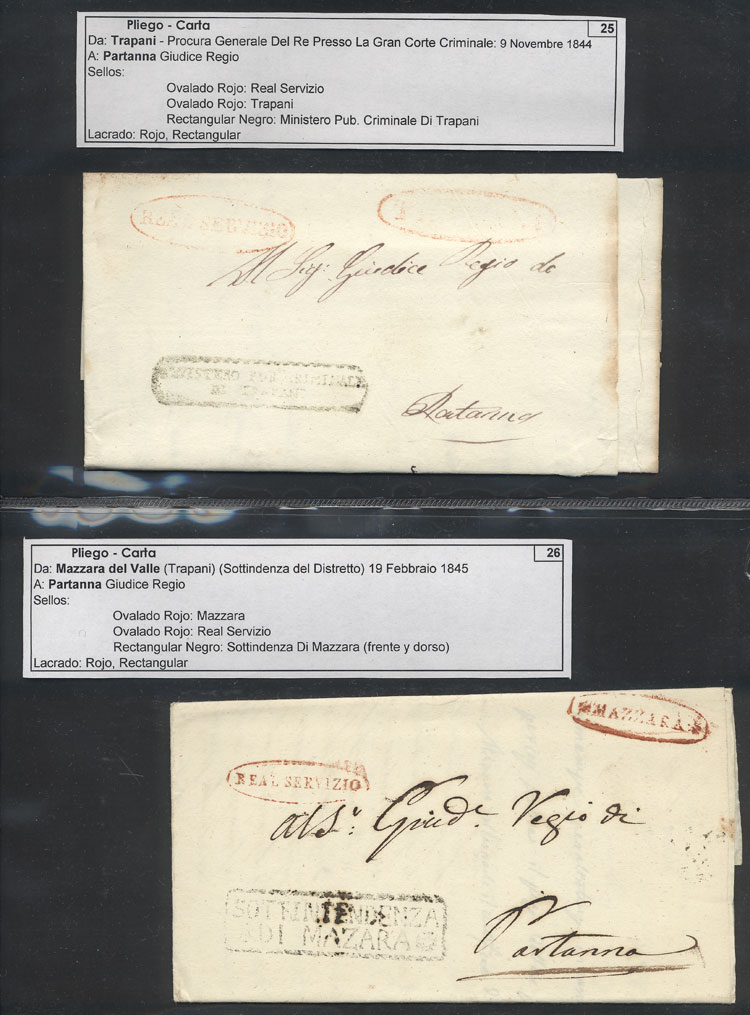 Pliego - Carta 25
Da: Trapani - Procura Generale Del Re Presso La Gran Corte Criminale: 9 Novembre 1844
A: Partanna Giudice Regio
Sellos:
Ovalado Rojo: Real Servizio
Ovalado Rojo: Trapani
Rectangular Negro: Ministero Pub. Criminale Di Trapani
Lacrado: Rojo, Rectangular
REAL SERVIZIO
Al Sig: Giudice Regio di
Partanna
Pliego - Carta 26
Da: Mazzara del Valle (Trapani) (Sottindenza del Distretto) 19 Febbraio 1845
A: Partanna Giudice Regio
Sellos:
Ovalado Rojo: Mazzara
Ovalado Rojo: Real Servizio
Rectangular Negro: Sottindenza Di Mazzara (frente y dorso)
Lacrado: Rojo, Rectangular
MAZZARA
REAL SERVIZIO
Giud. Regio di
SOTTINTENDENZA
DI MAZARA
Partanna